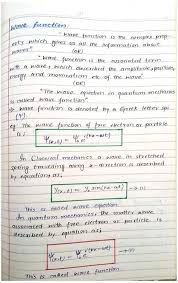 Wave function:
" Wave function is the complex prop-
erty which gives us all the information about
wave"
(OR)
" Wave function is the essential term
with a wave, which described the amplitude, position,
energy and momentum etc. of the wave"
(OR)
"The wave equation in quantum mechanics
is called wave function"
wave function is denoted by a Greek letter
(ψ)
eg: The wave function of free electron or particle
is;
Ψ(x,t) = Ψ₀ e^i(kx-ωt)
In Classical mechanics a wave in stretched
string travelling along x-direction is described
by equation as;
Y(x,t) = y₀ sin(kx-ωt) → (i)
This is called wave equation.
In quantum mechanics; the matter wave
associated with free electron or particle is
described by equation as;
Ψ(x,t) = Ψ₀ e^i(kx-ωt) → (ii)
This is called wave function